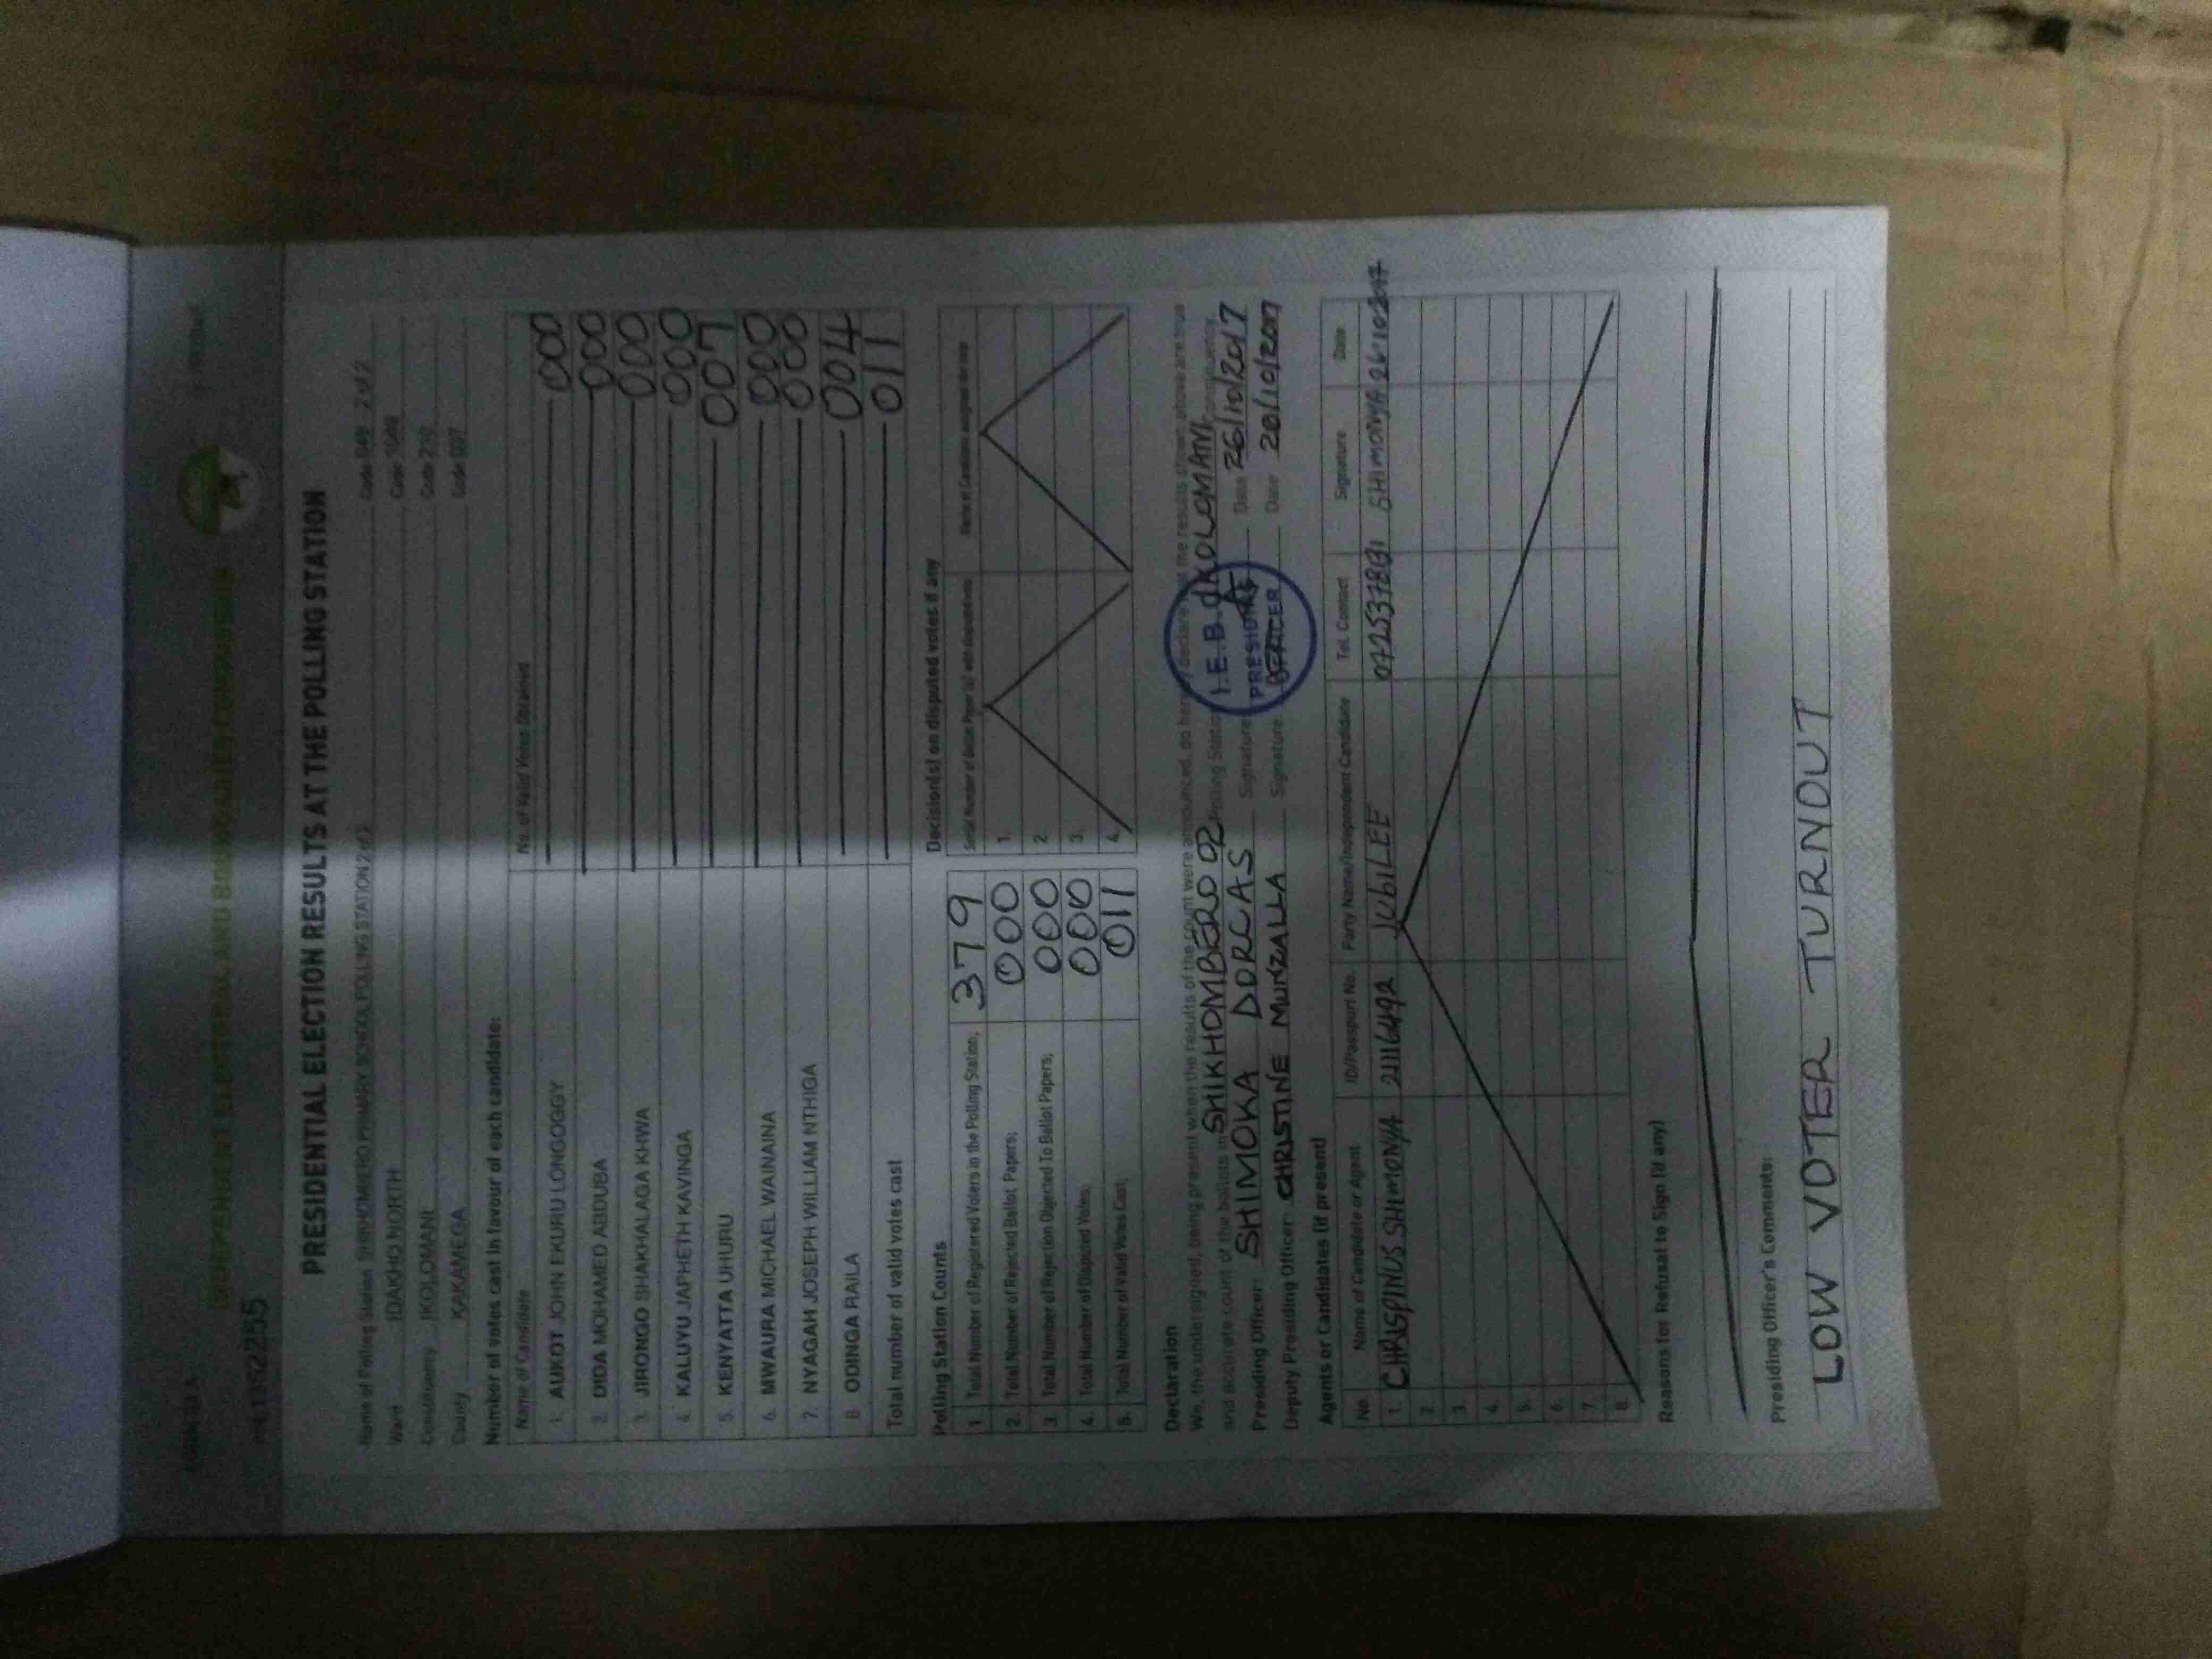 FORM 34A
INDEPENDENT ELECTORAL AND BOUNDARIES COMMISSION
PRESIDENTIAL ELECTION RESULTS AT THE POLLING STATION
Name of Polling Station SHIKHOMBERO PRIMARY SCHOOL POLLING STATION 2 of 2 Code 049 2 of 2
Ward IDAKHO NORTH Code
Constituency IKOLOMANI Code 210
County KAKAMEGA Code 037
Number of votes cast in favour of each candidate:
Name of Candidate No. of Valid Votes Obtained
1. AUKOT JOHN EKURU LONGOGGY 000
2. DIDA MOHAMED ABDUBA 000
3. JIRONGO SHAKHALAGA KHWA 000
4. KALUYU JAPHETH KAVINGA 000
5. KENYATTA UHURU 007
6. MWAURA MICHAEL WAINAINA 000
7. NYAGAH JOSEPH WILLIAM NTHIGA 000
8. ODINGA RAILA 004
Total number of valid votes cast 011
Polling Station Counts
1. Total Number of Registered Voters in the Polling Station; 379
2. Total Number of Rejected Ballot Papers; 000
3. Total Number of Rejection Objected To Ballot Papers; 000
4. Total Number of Disputed Votes; 000
5. Total Number of Valid Votes Cast; 011
Decision(s) on disputed votes if any
1.
2.
3.
4.
Declaration
We, the undersigned, being present when the results of the count were announced, do hereby declare that the results shown above are true
and accurate count of the ballots in SHIKHOMBERO 02 Polling Station IKOLOMANI Constituency.
Presiding Officer: SHIMOKA DORCAS Signature Date 26/10/2017
Deputy Presiding Officer: CHRISTINE Signature Date 26/10/2017
I.E.B.C
PRESIDING
OFFICER
Agents or Candidates (if present)
No. Name of Candidate or Agent ID/Passport No. Party Name/Independent Candidate Tel. Contact Signature Date
1. CHRISPINUS SHIMONYA 21116492 JUBILEE SHIMONYA 26.10.2017
2.
3.
4.
5.
6.
7.
8.
Reasons for Refusal to Sign (if any)
Presiding Officer's Comments:
LOW VOTER TURNOUT